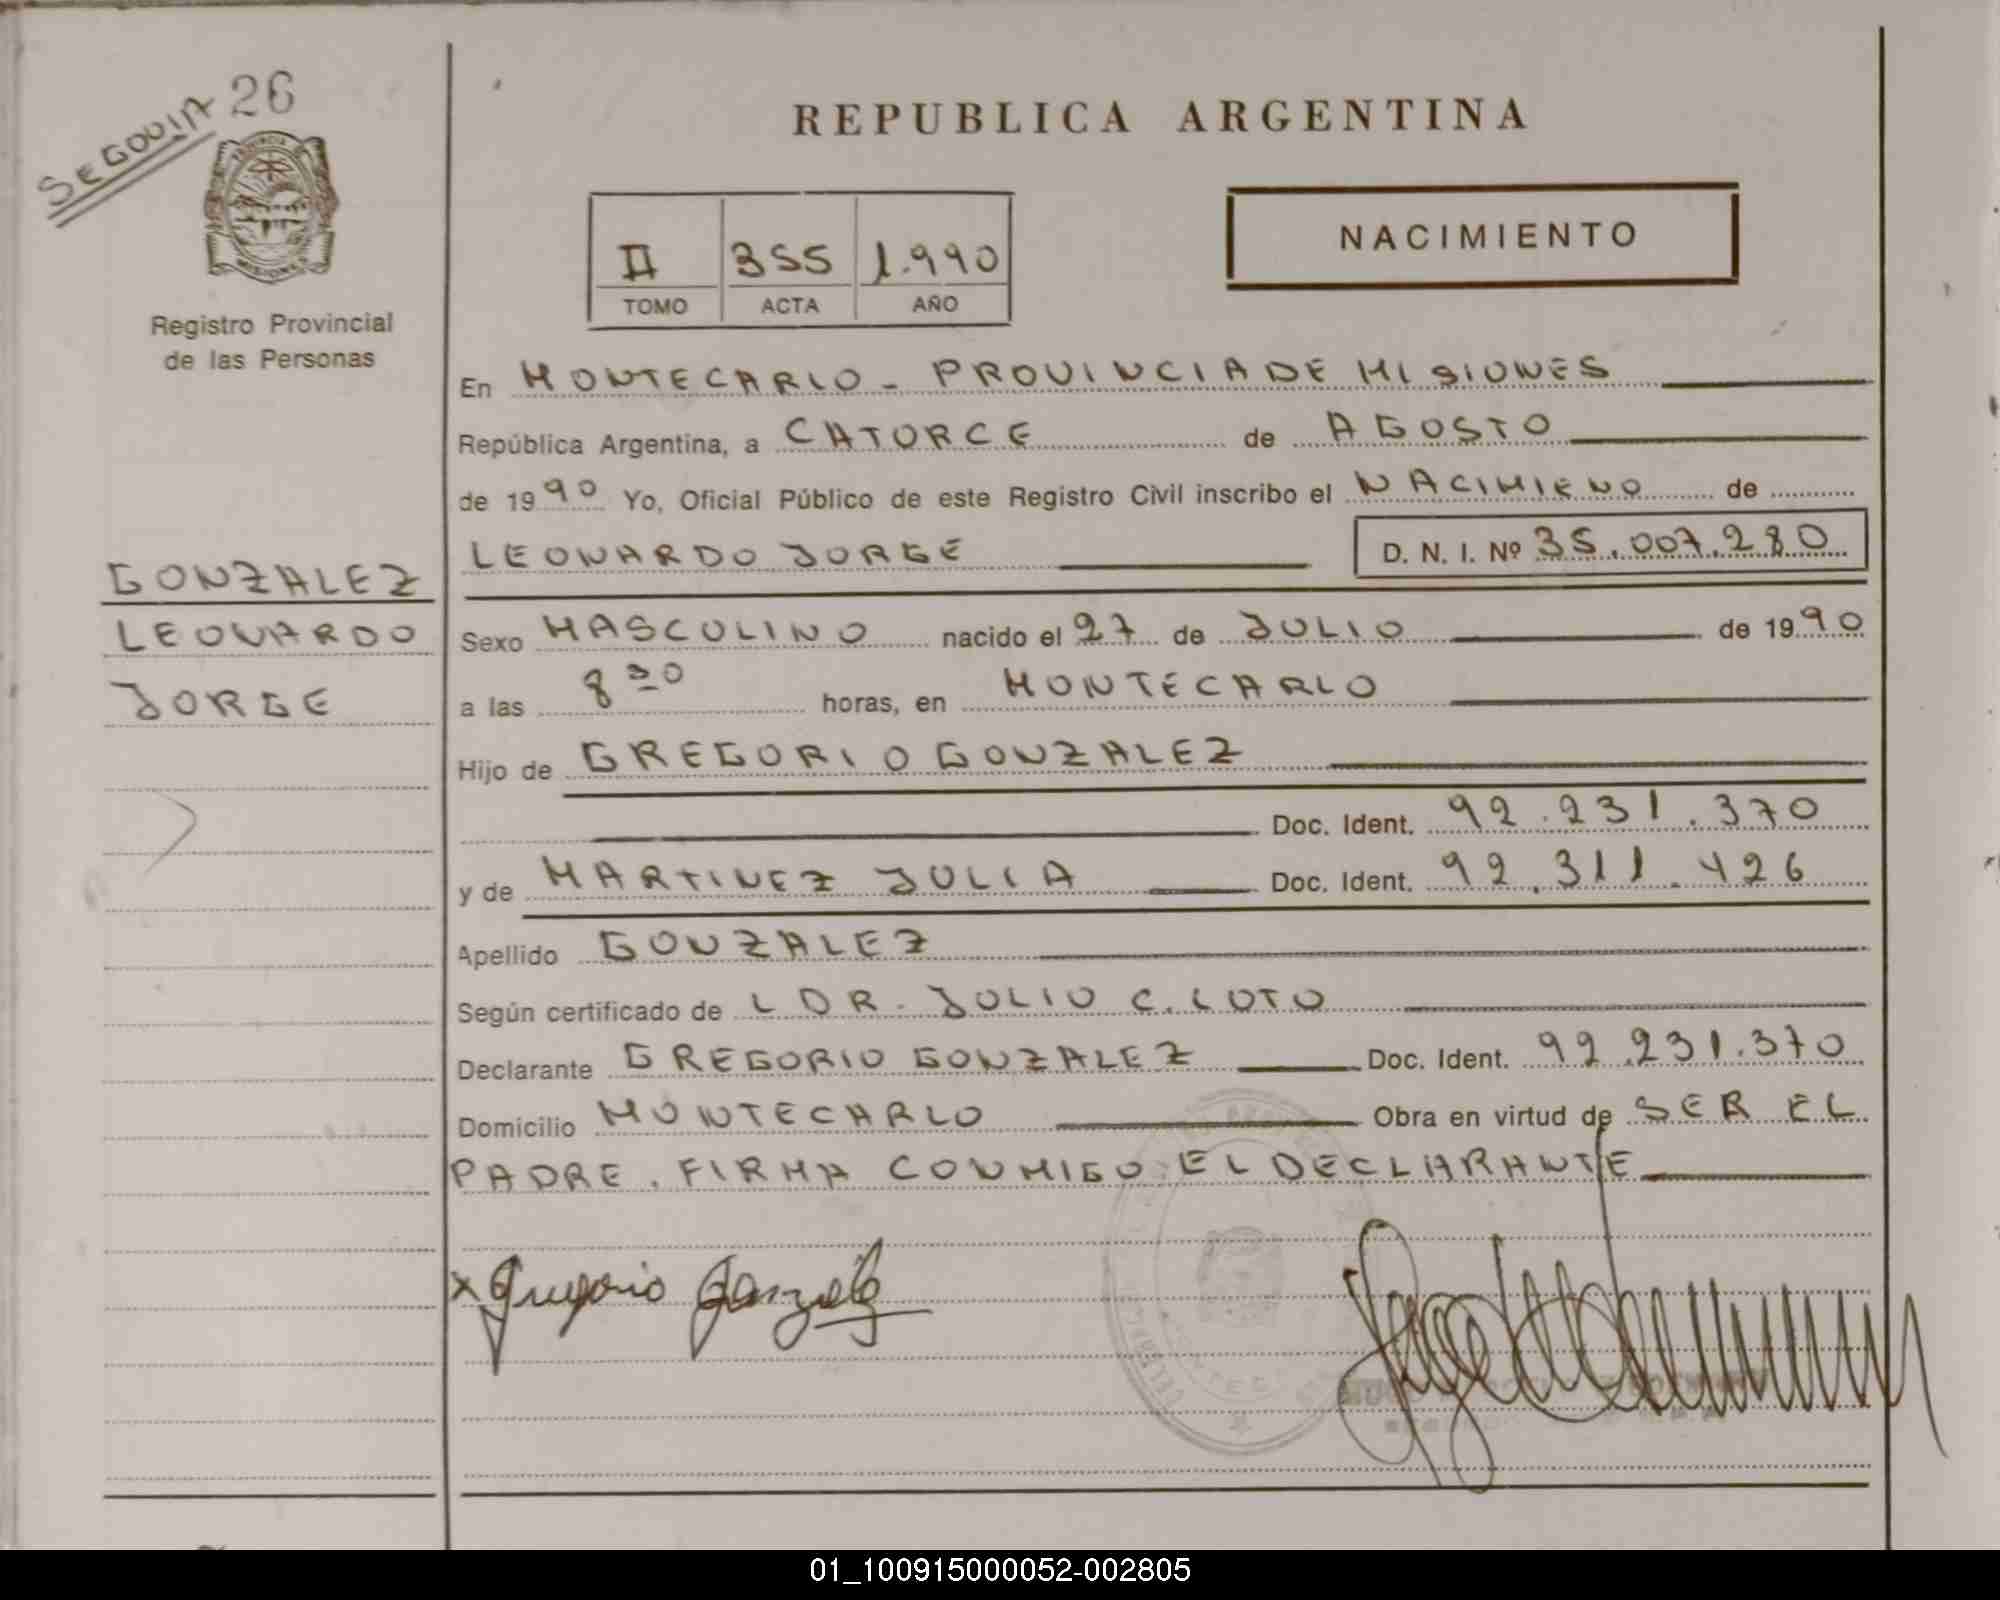 SEGOVIA 26
PROVINCIA DE
MISIONES
Registro Provincial
de las Personas
GONZALEZ
LEONARDO
JORGE
REPUBLICA ARGENTINA
II 355 1.990
TOMO ACTA AÑO
NACIMIENTO
En MONTECARLO - PROVINCIA DE MISIONES
República Argentina, a CATORCE de AGOSTO
de 1990 Yo, Oficial Público de este Registro Civil inscribo el NACIMIENO de
LEONARDO JORGE D. N. I. Nº 35.007.280
Sexo MASCULINO nacido el 27 de JULIO de 1990
a las 8 30 horas, en MONTECARLO
Hijo de GREGORIO GONZALEZ
Doc. Ident. 92.231.370
y de MARTINEZ JULIA Doc. Ident. 92.311.426
Apellido GONZALEZ
Según certificado de L DR. JULIO C. LOTO
Declarante GREGORIO GONZALEZ Doc. Ident. 92.231.370
Domicilio MONTECARLO Obra en virtud de SER EL
PADRE. FIRMA CONMIGO EL DECLARANTE
x Gregorio Gonzalez
01_100915000052-002805